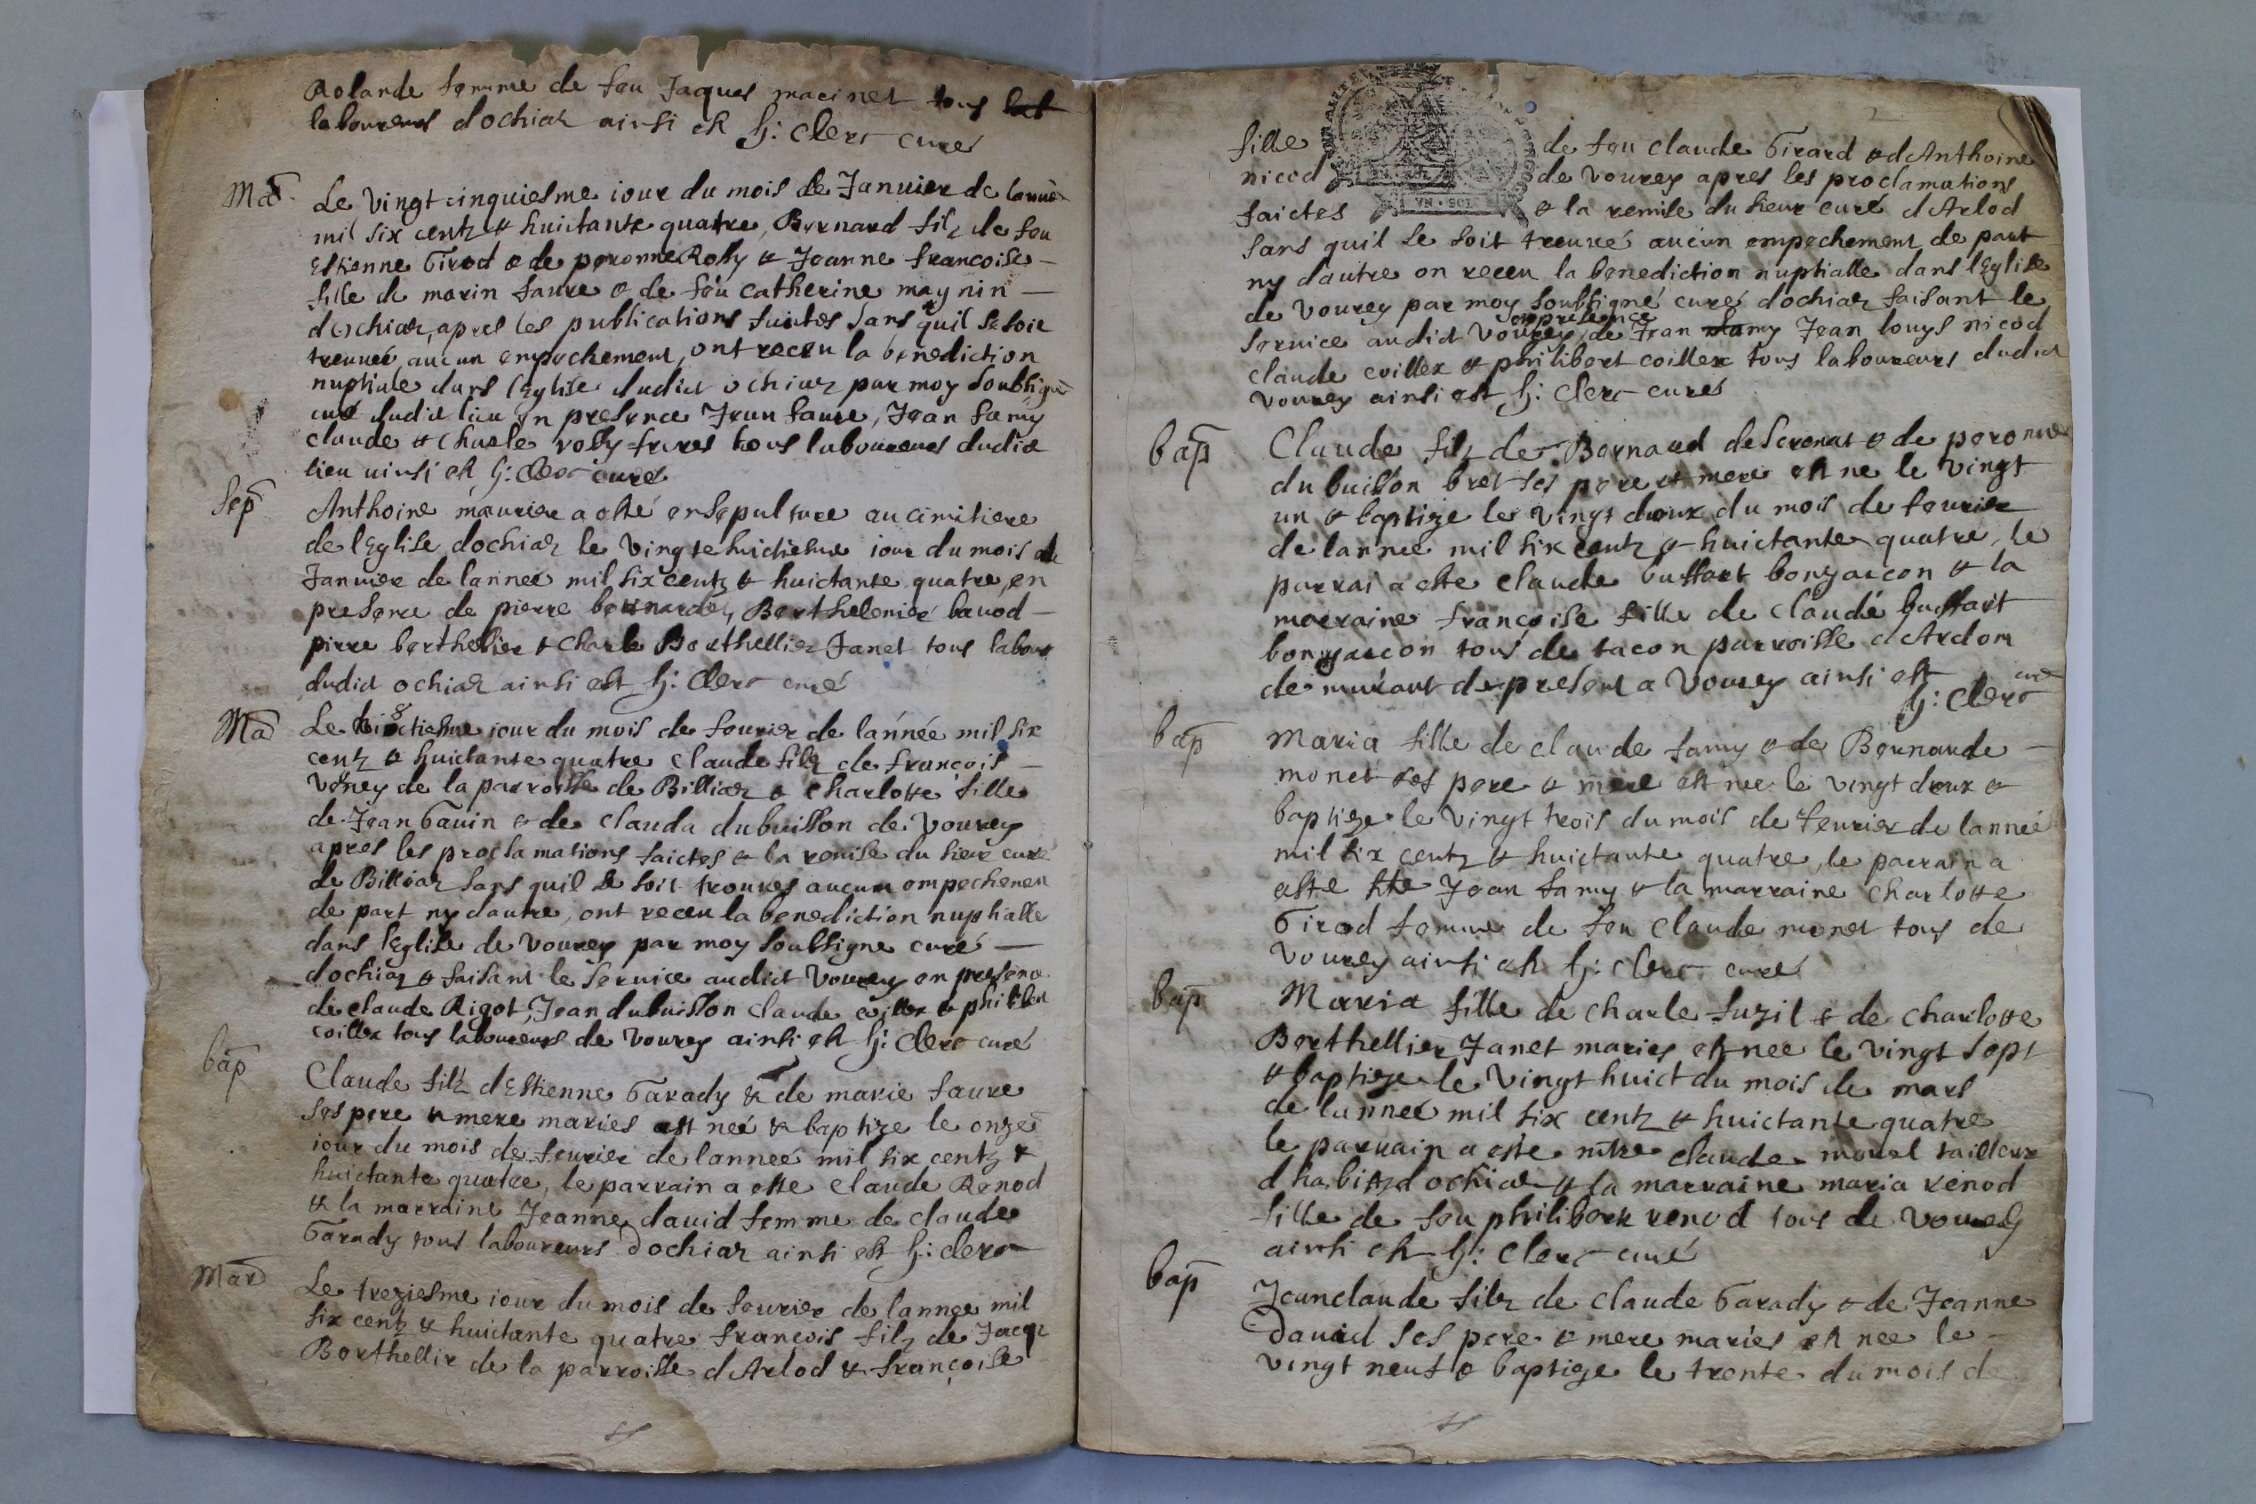 Rolande femme de feu Jaques macinet tous
laboureurs dochiaz ainsi est h: Clerc curé
Mar
Le Vingt cinquiesme iour du mois de Januier de lannee
mil six centz & huictante quatre, Bernard filz de feu
Estienne Girod & de peronne Roby & Jeanne francoise
fille de marin faure & de feu Catherine maynin
dochiaz, apres les publications faictes sans quil se soit
treuué aucun empechement, ont receu la benediction
nuptiale dans lEglise dudict ochiaz par moy soubsigné
curé dudit lieu en presence Jean faure, Jean famy
claude & Charle roby freres tous laboureurs dudict
lieu ainsi est h: Clerc curé
Sep
Anthoine maurier a esté ensepulture au cimitiere
de lEglise dochiaz le Vingt huictiesme iour du mois de
Januier de lannee mil six centz & huictante quatre, en
presence de pierre bernardet, Barthelemie bauod
pierre berthelier & Charle Berthellier Janet tous labour
dudict ochiaz ainsi est h: Clerc curé
Mar
Le huictiesme iour du mois de feurier de lannée mil six
centz & huictante quatre claude filz de francois
Voney de la parroisse de Billiaz & Charlotte fille
de Jean Gauin & de clauda dubuisson de Vourey
apres les proclamations faictes & la remise du sieur curé
de Billiaz sans quil se soit trouues aucun empechemen
de part ny dautre, ont receu la benediction nuptialle
dans lEglise de Vourey par moy soubsigne curé
dochiaz & faisant le seruice audict Vourey en presence
de claude Rigot, Jean dubuisson Claude coillex & philibert
coillex tous laboureurs de Vourey ainsi est h: Clerc curé
bap
Claude filz dEstienne Garady & de marie faure
ses pere & mere maries est neé & baptize le onze
iour du mois de feurier de lanneé mil six centz &
huictante quatre, le parrain a este claude Renod
& la marraine Jeanne dauid femme de claude
Garady tous laboureurs dochiaz ainsi est h: clerc
Mar
Le treziesme iour du mois de feurier de lannee mil
six centz & huictante quatre francois filz de Jacq
Berthellir de la parroisse dArlod & francoise
fille de feu claude Girard & dAnthoine
nicod de Vourey apres les proclamations
faictes & la remise du sieur curé dArlod
VN SOL
sans quil se soit treuué aucun empechement de part
ny dautre on receu la benediction nuptialle dans lEglise
de Vourey par moy soubsigné curé dochiaz faisant le
seruice audict Vourey, en presence de Jean famy Jean louys nicod
claude coillex & philibert coillex tous laboureurs dudict
Vourey ainsi est h: Clerc curé
bap
Claude filz de Bernard de & de peronne
dubuisson bret ses pere & mere est ne le Vingt
un & baptize le Vingt deux du mois de feurier
de lannee mil six centz & huictante quatre, le
parrai a este claude buffart bongarcon & la
marraine françoise fille de claude buffart
bongarcon tous de tacon parroisse dArdon
demeurant de present a Vourey ainsi est
h: Clerc curé
bap
Maria fille de claude famy & de Bernarde
monet ses pere & mere est nee le vingt deux &
baptize le Vingt trois du mois de feurier de lanneé
mil six centz & huictante quatre, le parrain a
este Jean famy & la marraine Charlotte
Girod femme de feu claude monet tous de
Vourey ainsi est h: clerc curé
bap
Maria fille de Charle fuzil & de Charlotte
Berthellier Janet maries est nee le vingt sept
& baptize le Vingt huict du mois de mars
de lanneé mil six centz & huictante quatre
le parrain a este mtre claude morel tailleur
dhabitz dochiaz & la marraine maria renod
fille de feu philibert renod tous de Vourey
ainsi est h: Clerc curé
bap
Jeanclaude filz de claude Garady & de Jeanne
Dauid ses pere & mere maries est nee le
vingt neuf & baptize le trente du mois de